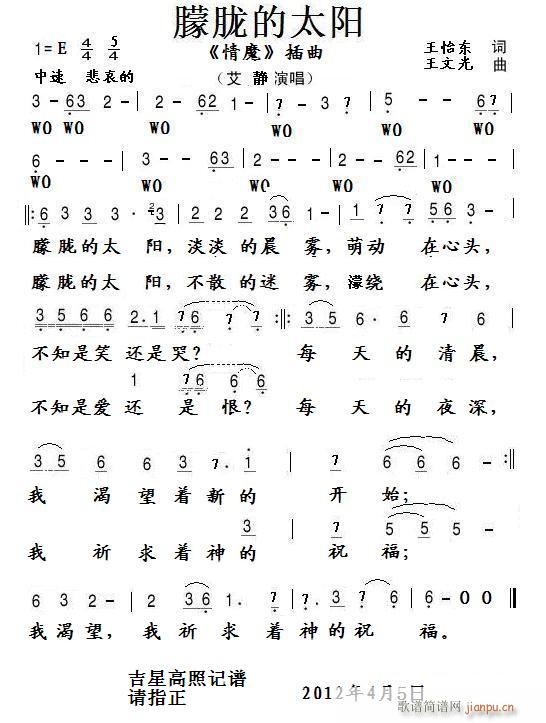 朦胧的太阳
1=E 4/4 5/4 《情魔》插曲 王怡东 词
中速 悲哀的 （艾 静 演唱） 王文光 曲
3 - 63 2 - - 2 - 62 1 - - 7 - 7 5 - - 6 - 67
WO WO WO WO WO WO WO WO
6 - - - 3 - - 63 2 - - 2 - 62 1 - - -
WO WO WO WO
‖: 6 3 3 3· 2 3 2 2 2 36 1 - 1· 7 7 56 3 -
朦胧的太 阳，淡淡的晨 雾，萌动 在心头，
朦胧的太 阳，不散的迷 雾，濛绕 在心头，
3 5 6 6 2·1 76 7 7 :‖: 3 5 6· 6 7 6
不知是笑 还是哭？ 每 天 的 清 晨，
1 76 6 6
不知是爱 还 是 恨？ 每 天 的 夜 深，
3 5 6 6 3· 7 1 7 6 6 6 - :‖
我 渴 望 着 新 的 开 始；
3 5 5 5
我 祈 求 着 神 的 祝 福；
6 3 2 - 2 36 1· 7 3 2 7 7 6 - 0 0 ‖
我 渴 望， 我 祈 求 着 神 的 祝 福。
吉星高照记谱
请指正 2012年4月5日
歌谱简谱网
jianpu.cn